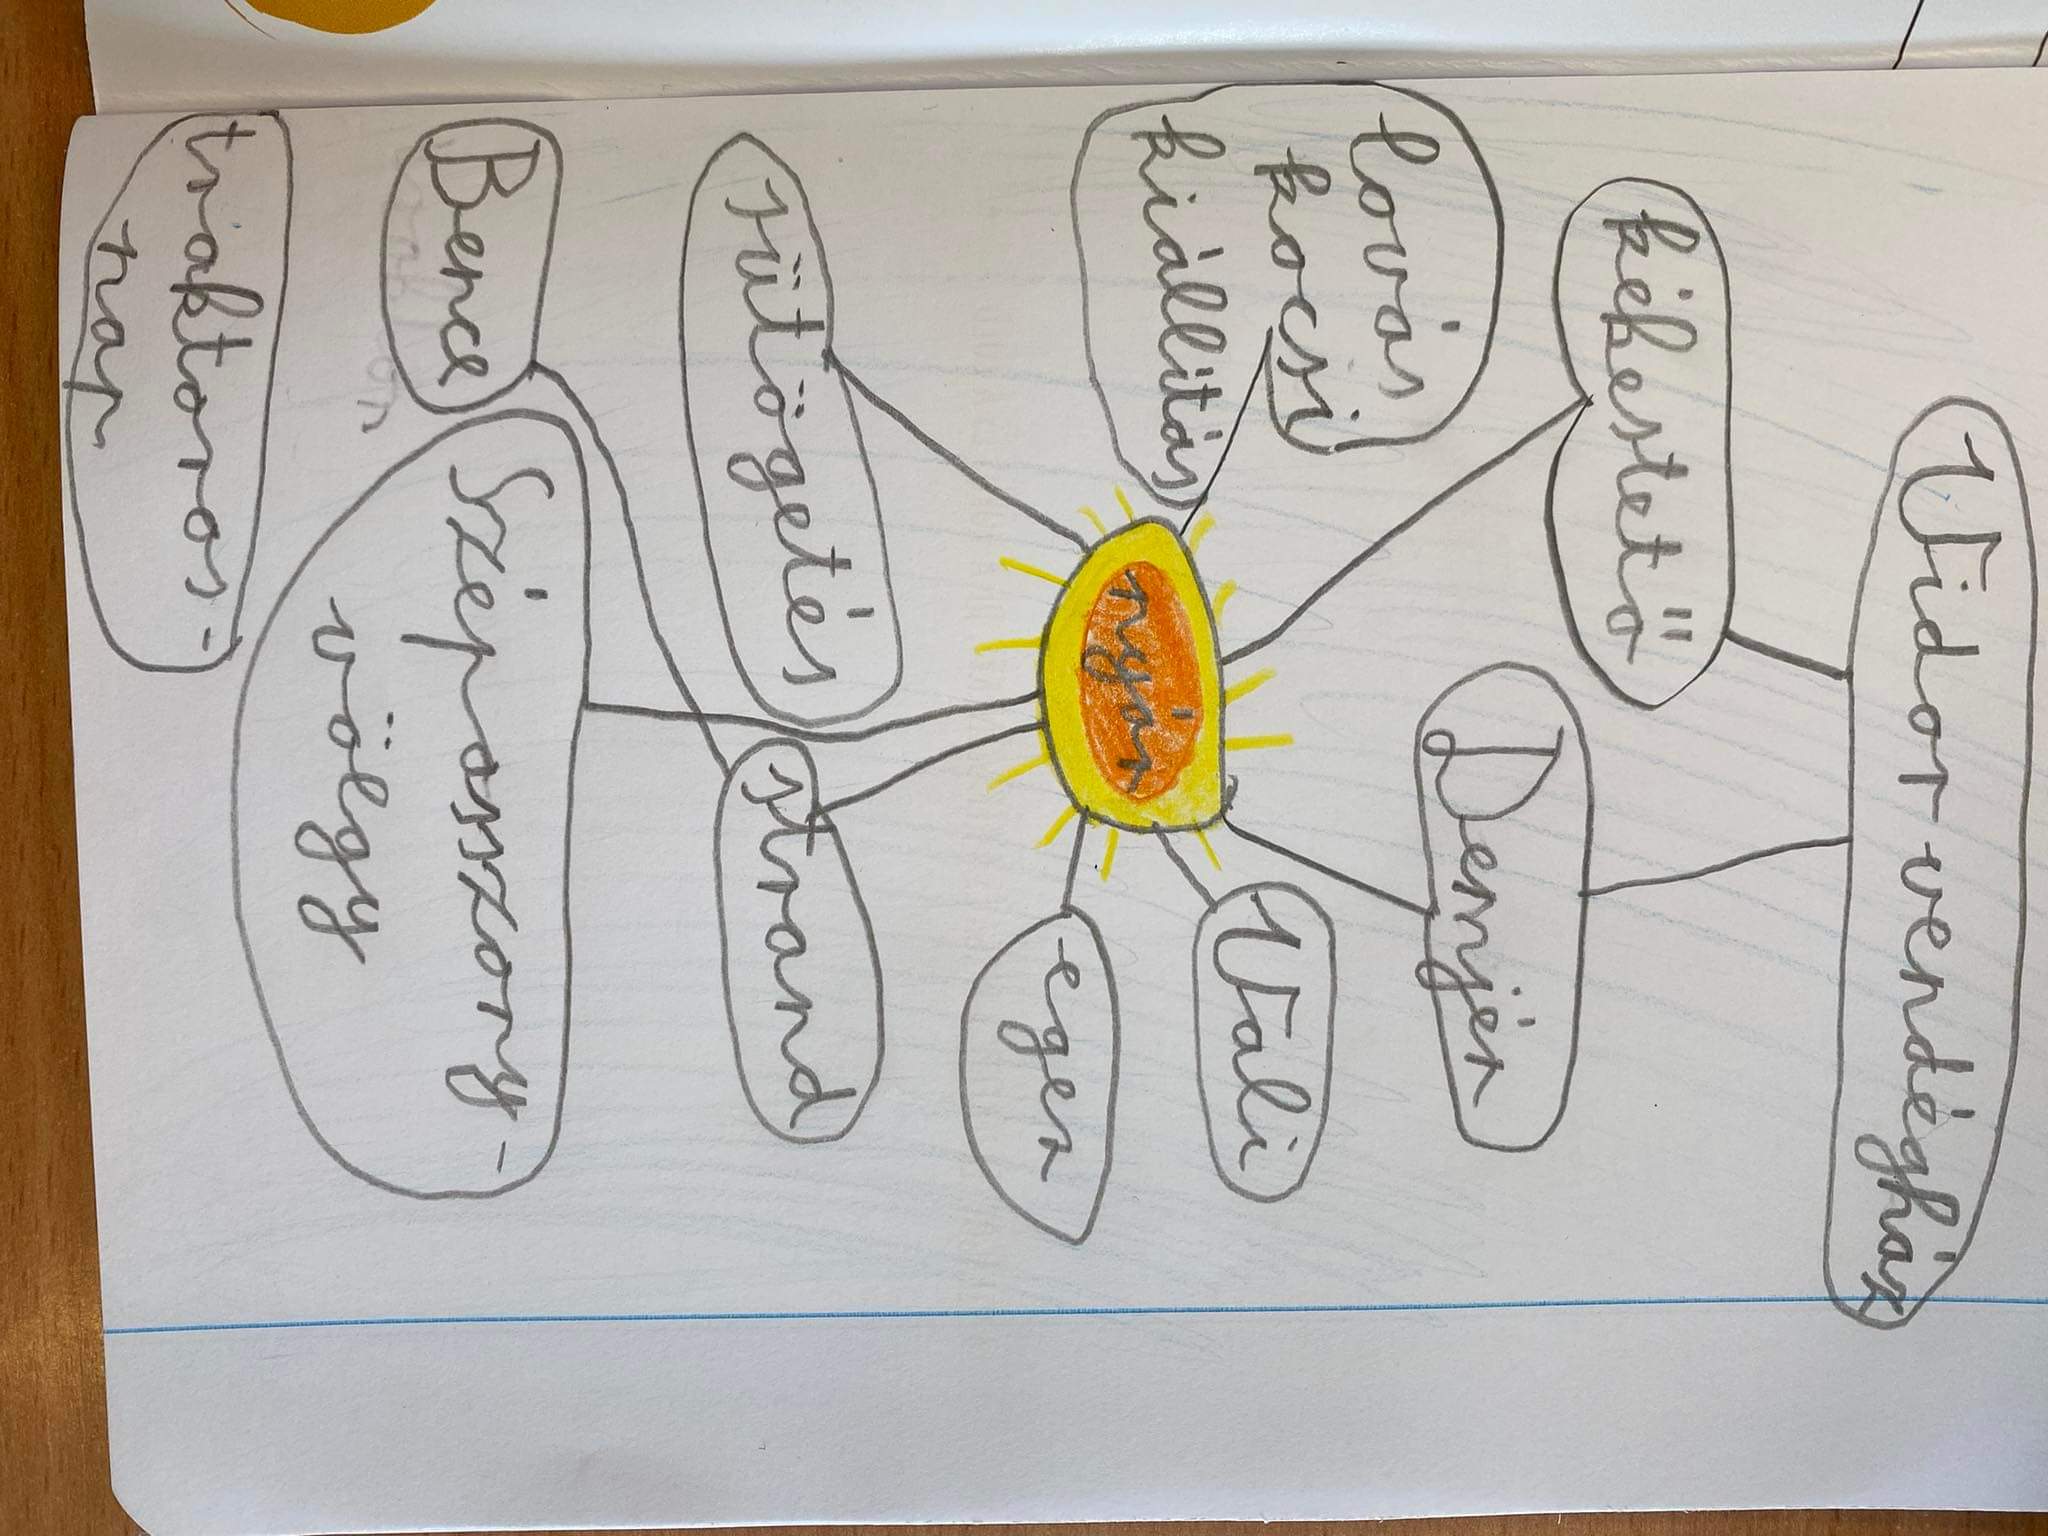 Vidor vendégház
kékestető
Demjén
lovas
kocsi
kiállítás
Vali
nyár
eger
sütögetés
strand
Bence
Szépasszony-
völgy
traktoros-
nap